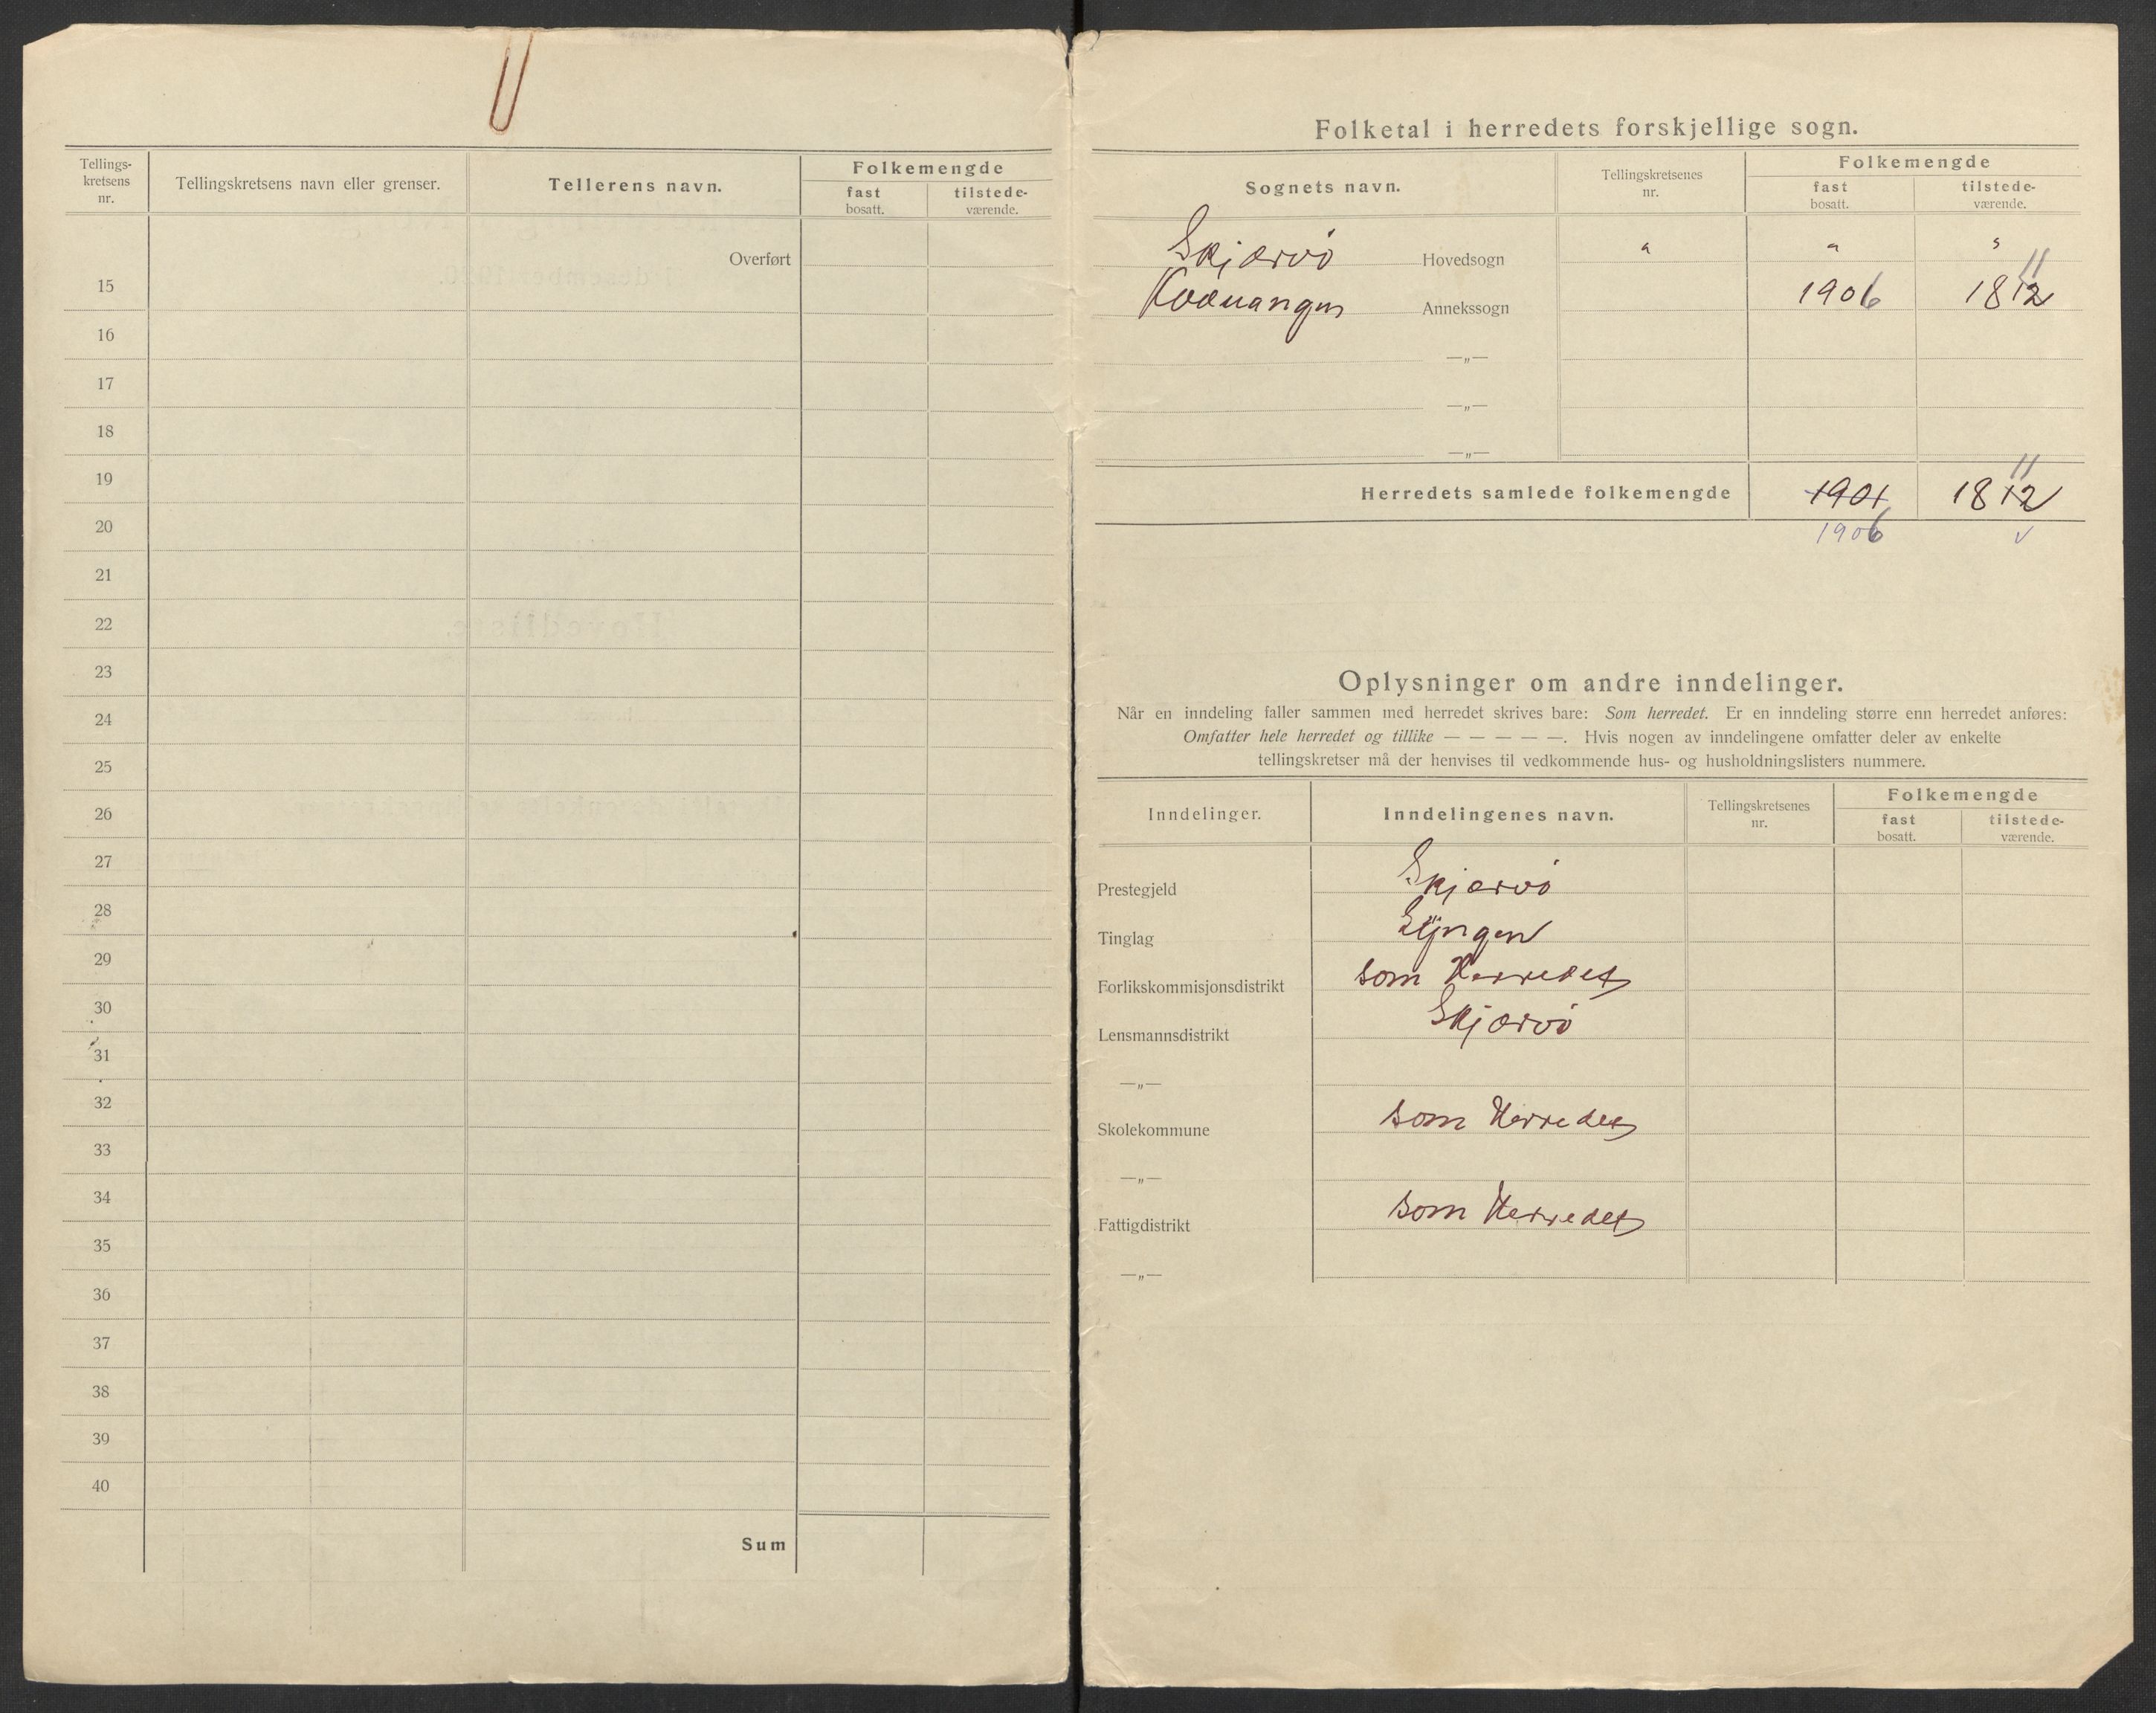 Tellings-
kretsens
nr.
Tellingskretsens navn eller grenser.
Tellerens navn.
Folkemengde
fast
bosatt.
tilstede-
værende.
Overført
15
16
17
18
19
20
21
22
23
24
25
26
27
28
29
30
31
32
33
34
35
36
37
38
39
40
Sum
Folketal i herredets forskjellige sogn.
Sognets navn.
Tellingskretsenes
nr.
Folkemengde
fast
bosatt.
tilstede-
værende.
Skjærvö Hovedsogn " " "
Kvænangen Annekssogn 1906 1812 11
—„—
—„—
—„—
Herredets samlede folkemengde 1901 1812 11
1906 v
Oplysninger om andre inndelinger.
Når en inndeling faller sammen med herredet skrives bare: Som herredet. Er en inndeling større enn herredet anføres:
Omfatter hele herredet og tillike — — — — —. Hvis nogen av inndelingene omfatter deler av enkelte
tellingskretser må der henvises til vedkommende hus- og husholdningslisters nummere.
Inndelinger.
Inndelingenes navn.
Tellingskretsenes
nr.
Folkemengde
fast
bosatt.
tilstede-
værende.
Prestegjeld Skjærvö
Tinglag Lyngen
Forlikskommisjonsdistrikt som Herredet
Lensmannsdistrikt Skjærvö
—„—
Skolekommune som Herredet
—„—
Fattigdistrikt som Herredet
—„—